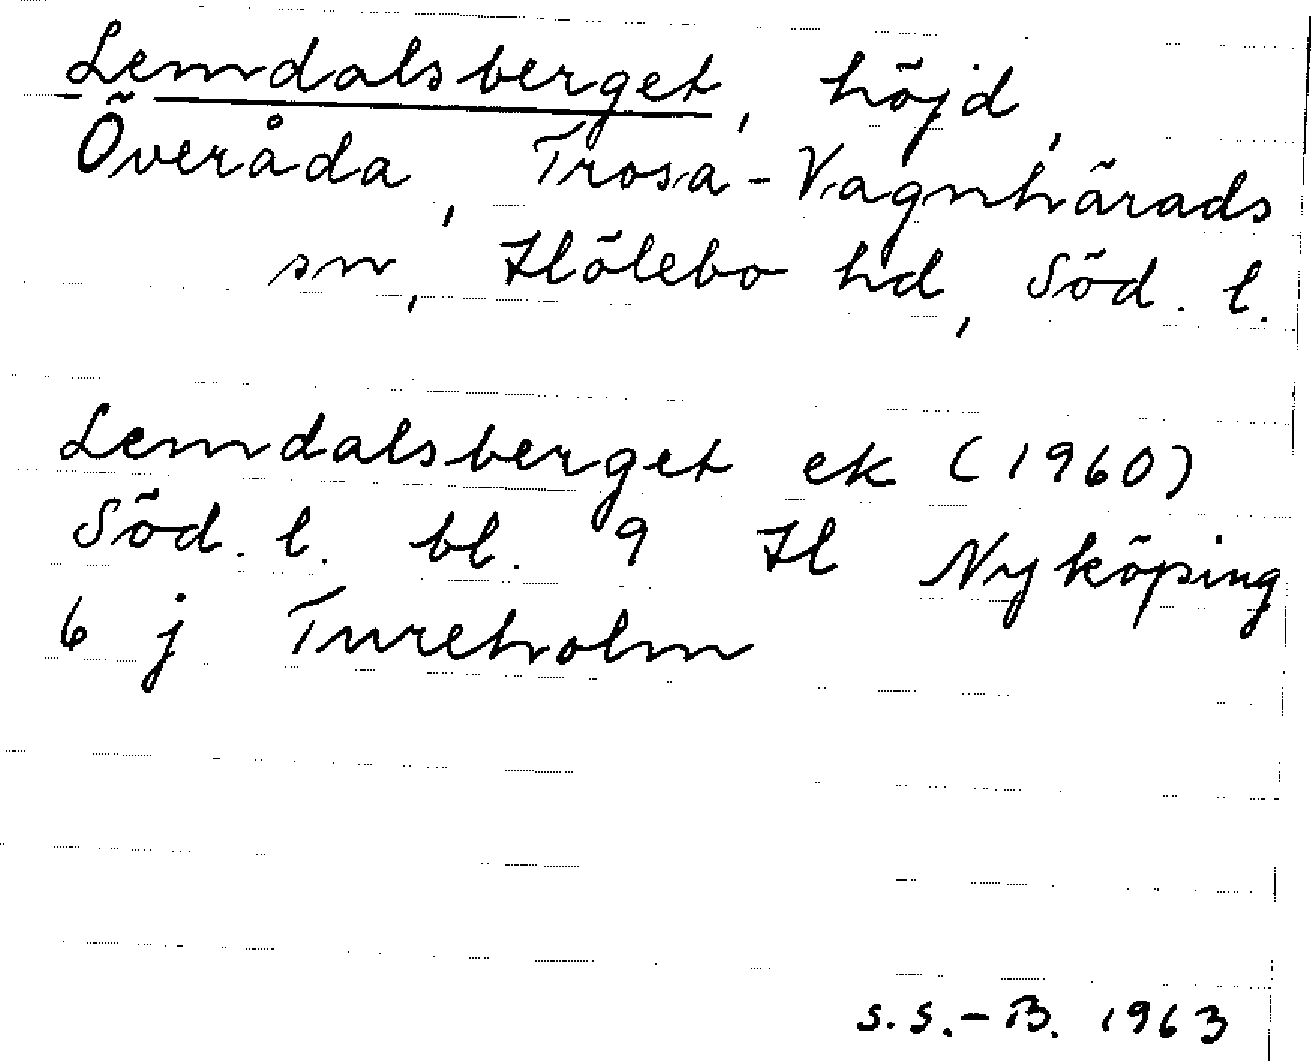 Lemdalsberget, höjd,
Överåda, Trosa-Vagnhärads
sn, Hölebo hd, Söd. l.
Lemdalsberget ek (1960)
Söd. l. bl. 9 H Nyköping
6 j Tureholm
S.S.-B. 1963